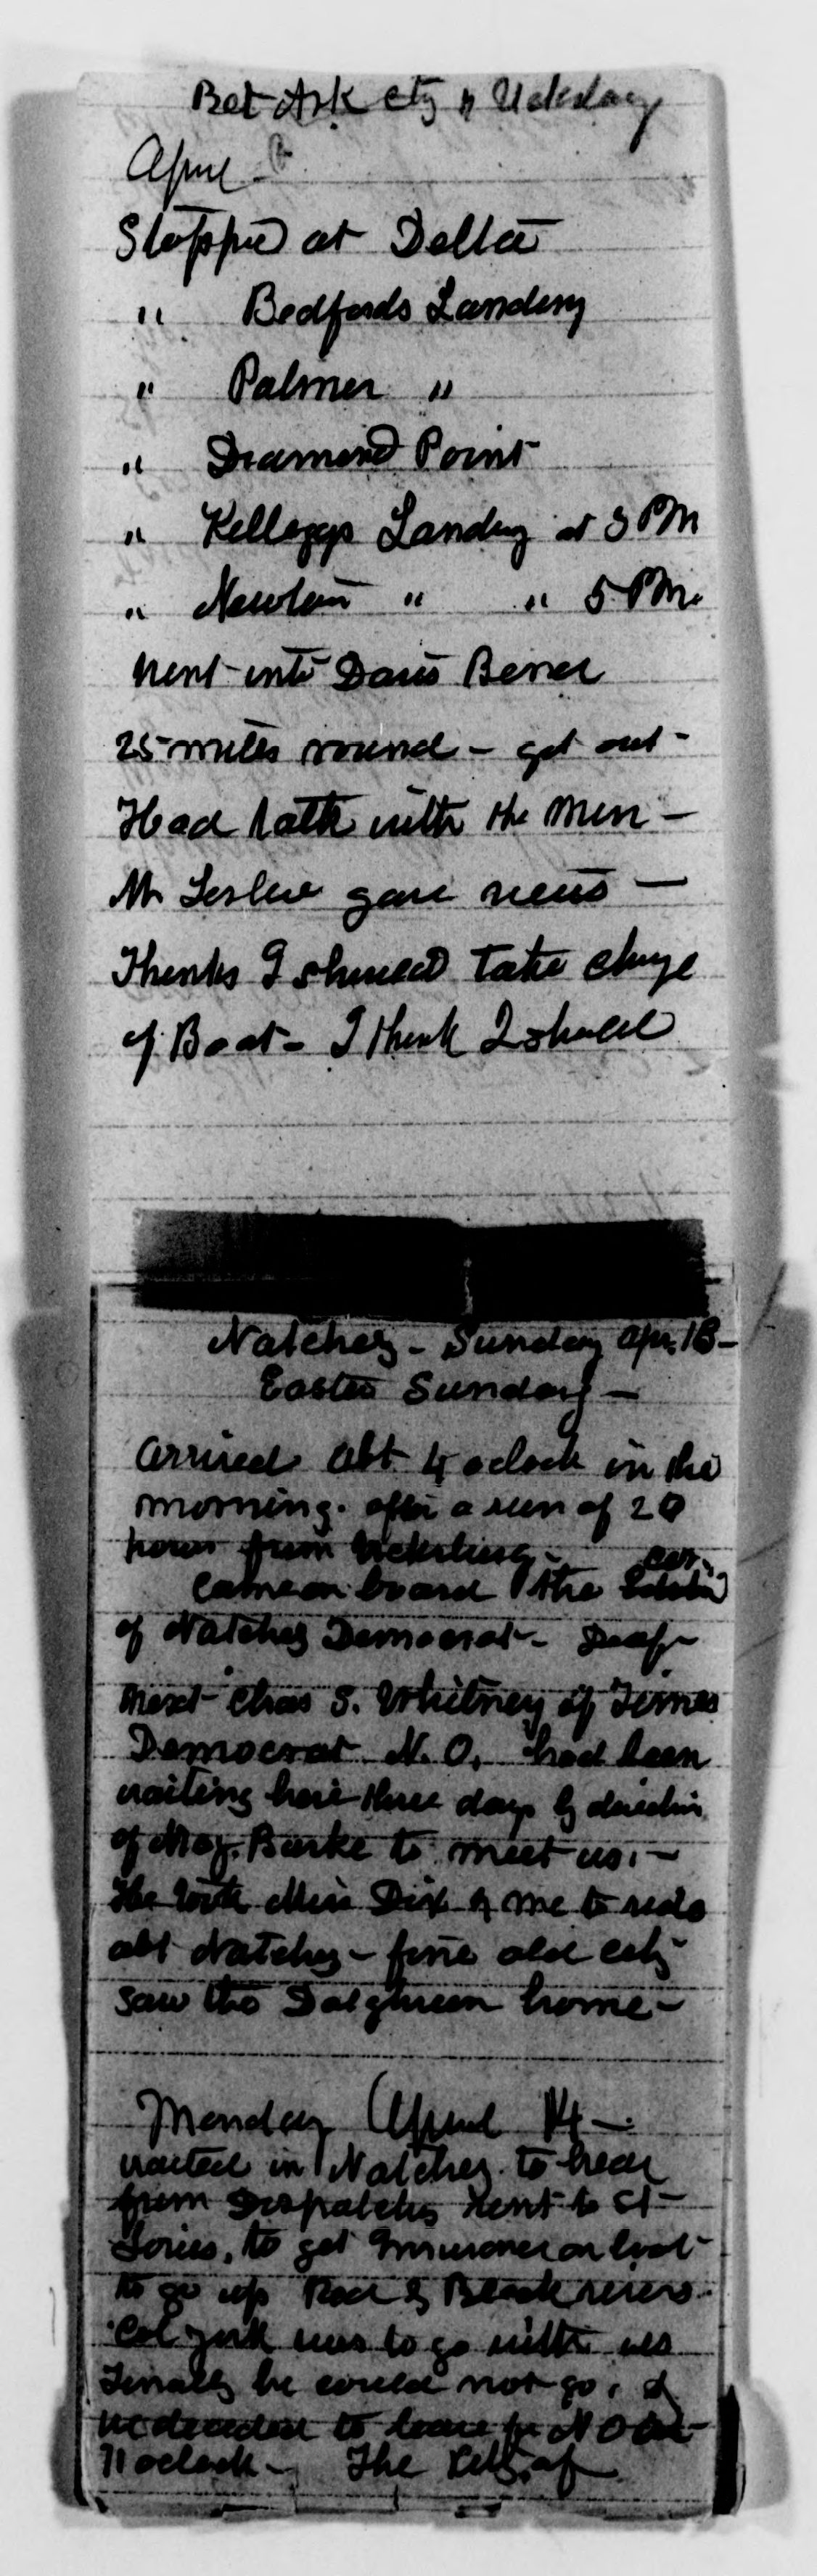 Bet Ark City &
April
Stopped at Delta
" Bedfords Landing
" Palmer "
" Diamond Point
" Kelloggs Landing at 3 PM
" Newton " " 5 PM.
Went into Davis Bend
25 miles round - got out -
Had talk with the men -
Mr Leslie gave news -
Thinks I should take charge
of Boat - I think I should
Natchez - Sunday Apr. 13 -
Easter Sunday -
Arrived abt 4 oclock in the
morning. after a run of 20
hours from Vicksburg -
came on board the Editor
of Natchez Democrat - Deaf -
next Chas S. Whitney of Times
Democrat N. O. had been
waiting here three days by direction
of Maj. Burke to meet us. -
He took Miss Dix & me to ride
abt Natchez - fine old city
saw the home -
Monday April 14 -
waited in Natchez to hear
from Dispatches sent to St
Louis, to get Insurance on boat
to go up Red & Black rivers
Col York was to go with us
Finally he could not go, &
we decided to leave for N O at
11 oclock - The